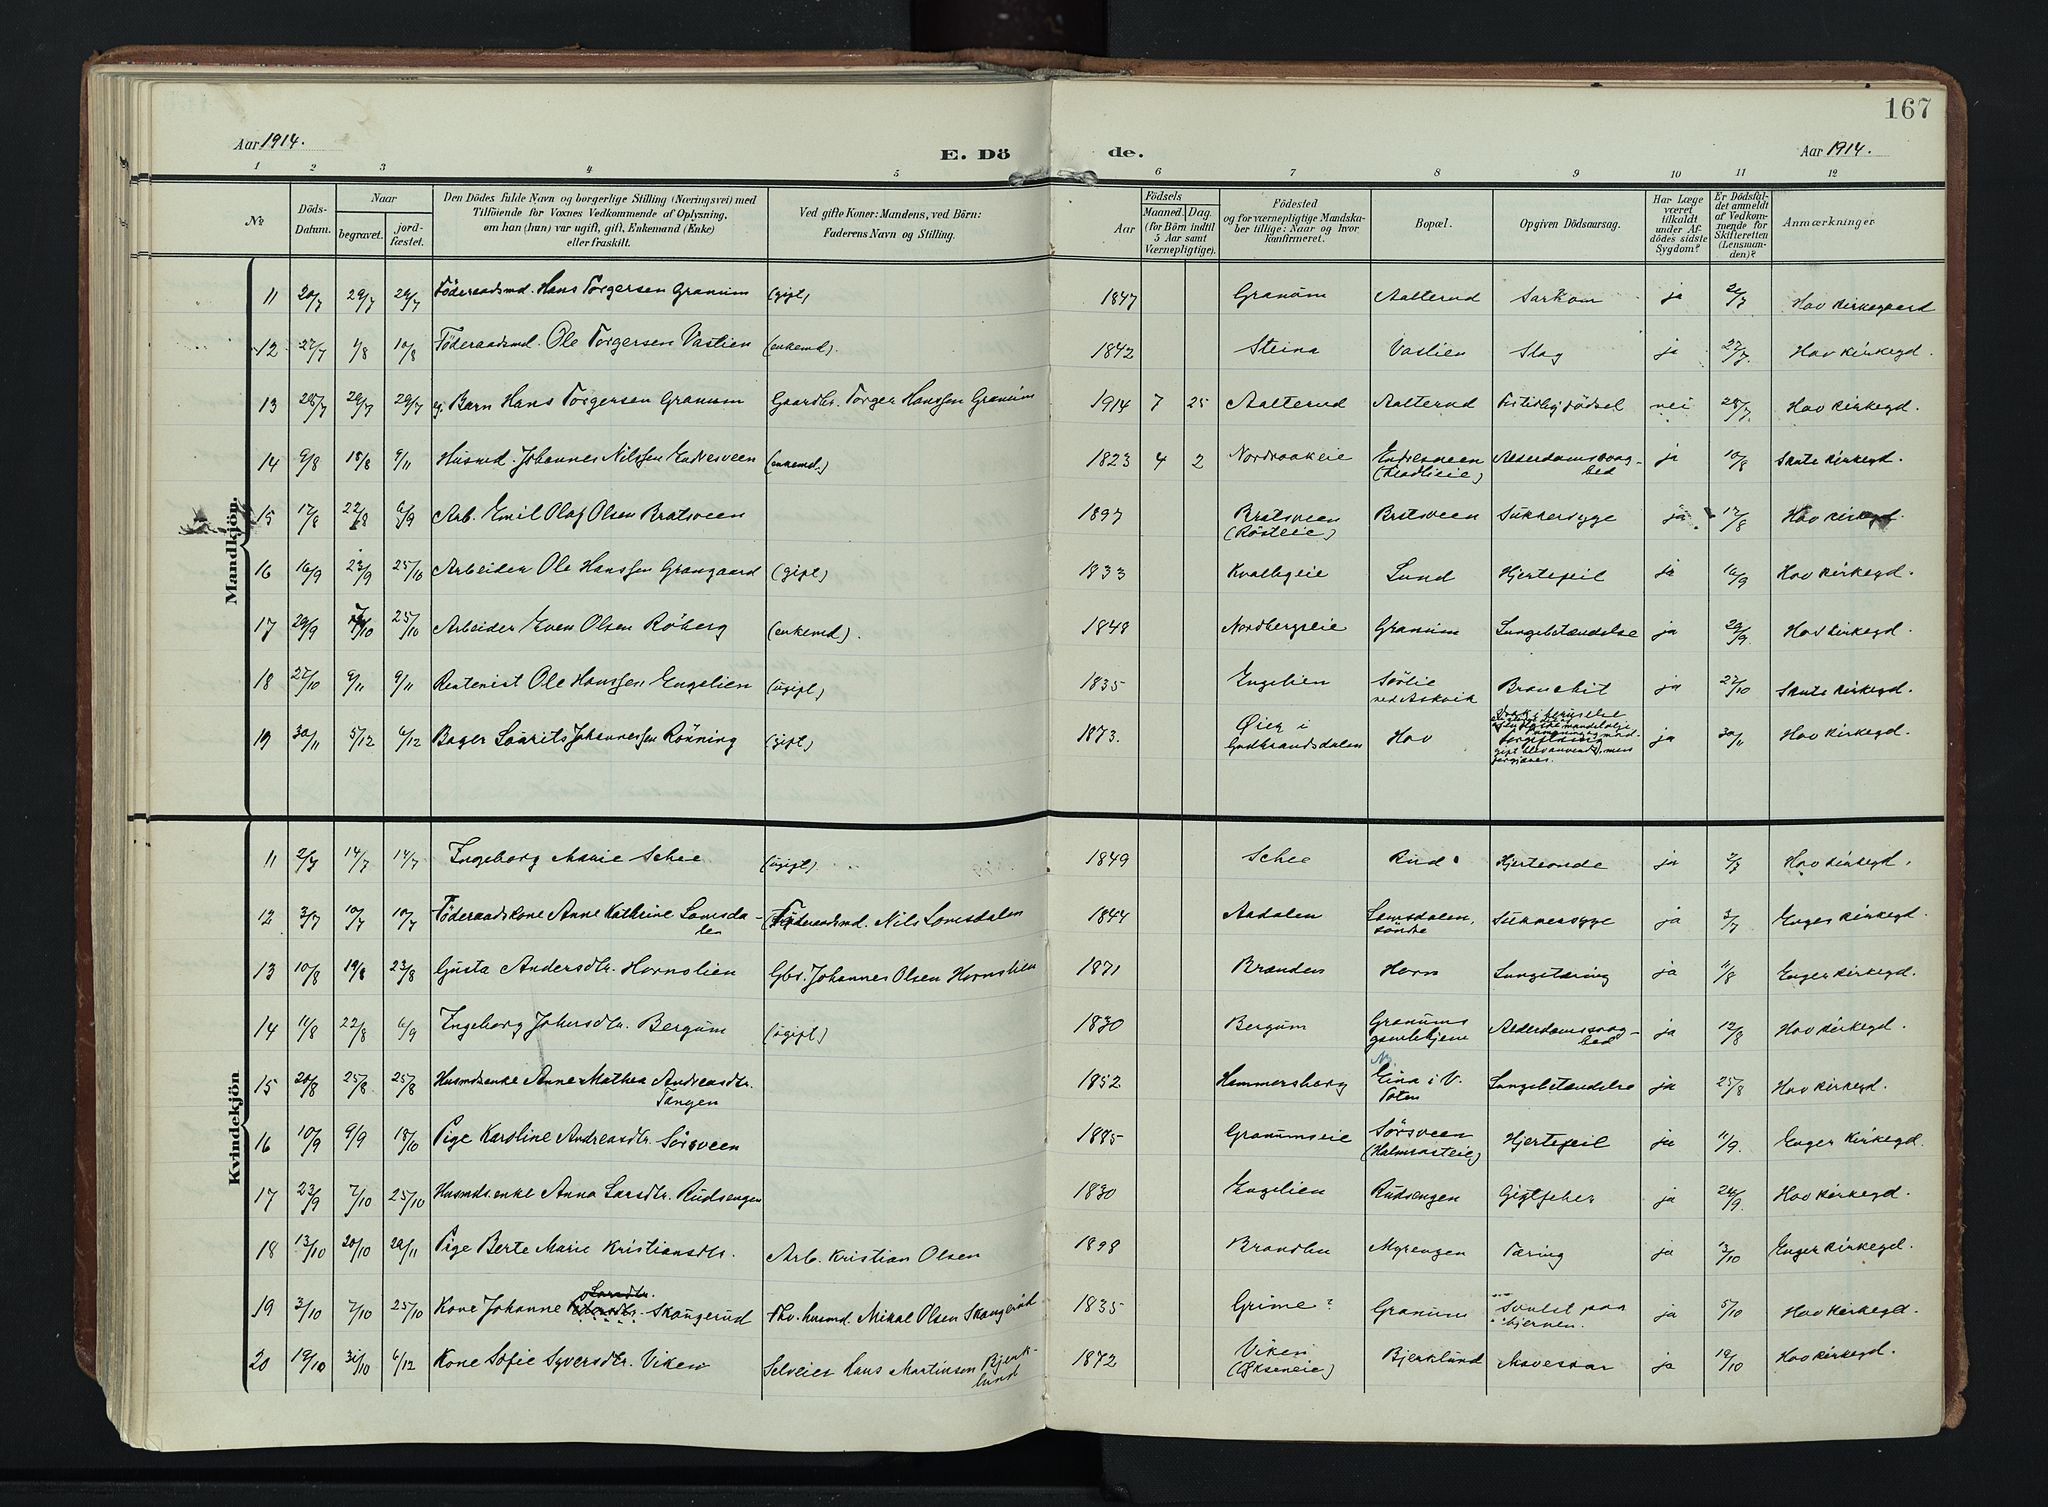 167
Aar 1914.
E. Döde.
Aar 1914.
1 2 3 4 5 6 7 8 9 10 11 12
No.
Döds-Datum.
Naar
begravet.
jordfæstet.
Den Dödes fulde Navn og borgerlige Stilling (Næringsvei) med
Tilföiende for Voxnes Vedkommende af Oplysning,
om han (hun) var ugift, gift, Enkemand (Enke)
eller fraskilt.
Ved gifte Koner: Mandens, ved Börn:
Faderens Navn og Stilling.
Födsels
Aar
Maaned. Dag.
(for Börn indtil
5 Aar samt
Værnepligtige).
Födested
og for værnepligtige Mandskaber tillige: Naar og hvor
konfirmeret.
Bopæl.
Opgiven Dödsaarsag.
Har Læge
været
tilkaldt
under Afdödes sidste
Sygdom?
Er Dödsfaldet anmeldt
af Vedkommende for
Skifteretten
(Lensmanden)?
Anmærkninger
Mandkjön.
11 20/7 29/7 29/7 Föderaadsmd. Hans Torgersen Granum (gift) 1847 Granum Aalterud Sarkom ja 21/7 Hov kirkegaard
12 27/7 1/8 10/8 Föderaadsmd. Ole Torgersen Vastien (enkemd). 1842 Steina Vastien Slag ja 27/7 Hov kirkegd.
13 28/7 29/7 29/7 eg. Barn Hans Torgersen Granum Gaardbr. Torger Hanssen Granum 1914 7 25 Aalterud Aalterud Fortidlig födsel nei 28/7 Hov kirkegd.
14 9/8 18/8 9/11 Husmd. Johannes Nilssen Endresveen (enkemd.) 1823 4 2 Nordraakeie Endresveen Alderdomssvaghed ja 10/8 Skute kirkegd.
15 17/8 22/8 6/9 Arb. Emil Olaf Olsen Bratsveen 1897 Bratsveen (Rösteeie) Bratsveen Sukkersyge ja 17/8 Hov kirkegd.
16 16/9 23/9 25/10 Arbeider Ole Hanssen Grangaard (gift) 1833 Kvalbgeie Lund Hjertefeil ja 16/9 Hov kirkegd.
17 29/9 7/10 25/10 Arbeider Even Olsen Röberg (enkemd). 1848 Nordbergseie Granum Lungebetændelse ja 29/9 Hov kirkegd.
18 27/10 9/11 9/11 Rentenist Ole Hanssen Engelien (ugift) 1835 Engelien Sörlie ved Askvik Bronchit ja 27/10 Skute kirkegd.
19 30/11 5/12 6/12 Bager Laurits Johannessen Rönning (gift) 1873. Øier i Gudbrandsdalen Hov ja 30/11 Hov kirkegd.
Kvindekjön
11 2/7 14/7 14/7 Ingeborg Marie Schee (ugift) 1849 Schee Rud Hjerteonde ja 2/7 Hov kirkegd.
12 3/7 10/7 10/7 Föderaadskone Anne Kathrine Lomsdalen Föderaadsmd. Nils Lomsdalen 1844 Aadalen Lomsdalen, söndre Sukkersyge ja 3/7 Enger kirkegd.
13 10/8 19/8 23/8 Gusta Andersdtr. Hornslien Gbr. Johannes Olsen Hornslien 1871 Brænden Horn Lungetæring ja 11/8 Enger kirkegd.
14 11/8 22/8 6/9 Ingeborg Johersdtr. Bergum (ugift) 1830 Bergum Granums gamlehjem Alderdomssvaghed ja 12/8 Hov kirkegd.
15 20/8 25/8 25/8 Husmdsenke Anne Mathea Andreasdtr. Tangen 1852 Hammersborg Eina i V. Toten Lungebetændelse ja 25/8 Hov kirkegd.
16 10/9 9/9 18/10 Pige Karoline Andreasdtr. Sörsveen 1885 Granumseie Sörsveen Hjertefeil ja 11/9. Enger kirkegd.
17 23/9 7/10 25/10 Husmdsenke Anna Larsdtr. Rudsengen 1830 Engelien Rudsengen Gigtfeber ja 24/9. Hov kirkegd.
18 13/10 20/10 29/11 Pige Berte Marie Kristiansdtr. Arb. Kristian Olsen 1898 Brandbu Myrengen Tæring ja 13/10 Enger kirkegd.
19 3/10 7/10 25/10 Kone Johanne Larsdtr. Skougerud Fhv. husmd. Mikal Olsen Skougerud 1835 Grime? Granum Svulst paa hjernen. ja 5/10 Hov kirkegd.
20 19/10 31/10 6/12 Kone Sofie Syversdtr. Viken Selveier Hans Martinsen Bjerklund 1872 Viken (Økseneie) Bjerklund Mavesaar ja 19/10 Hov kirkegd.